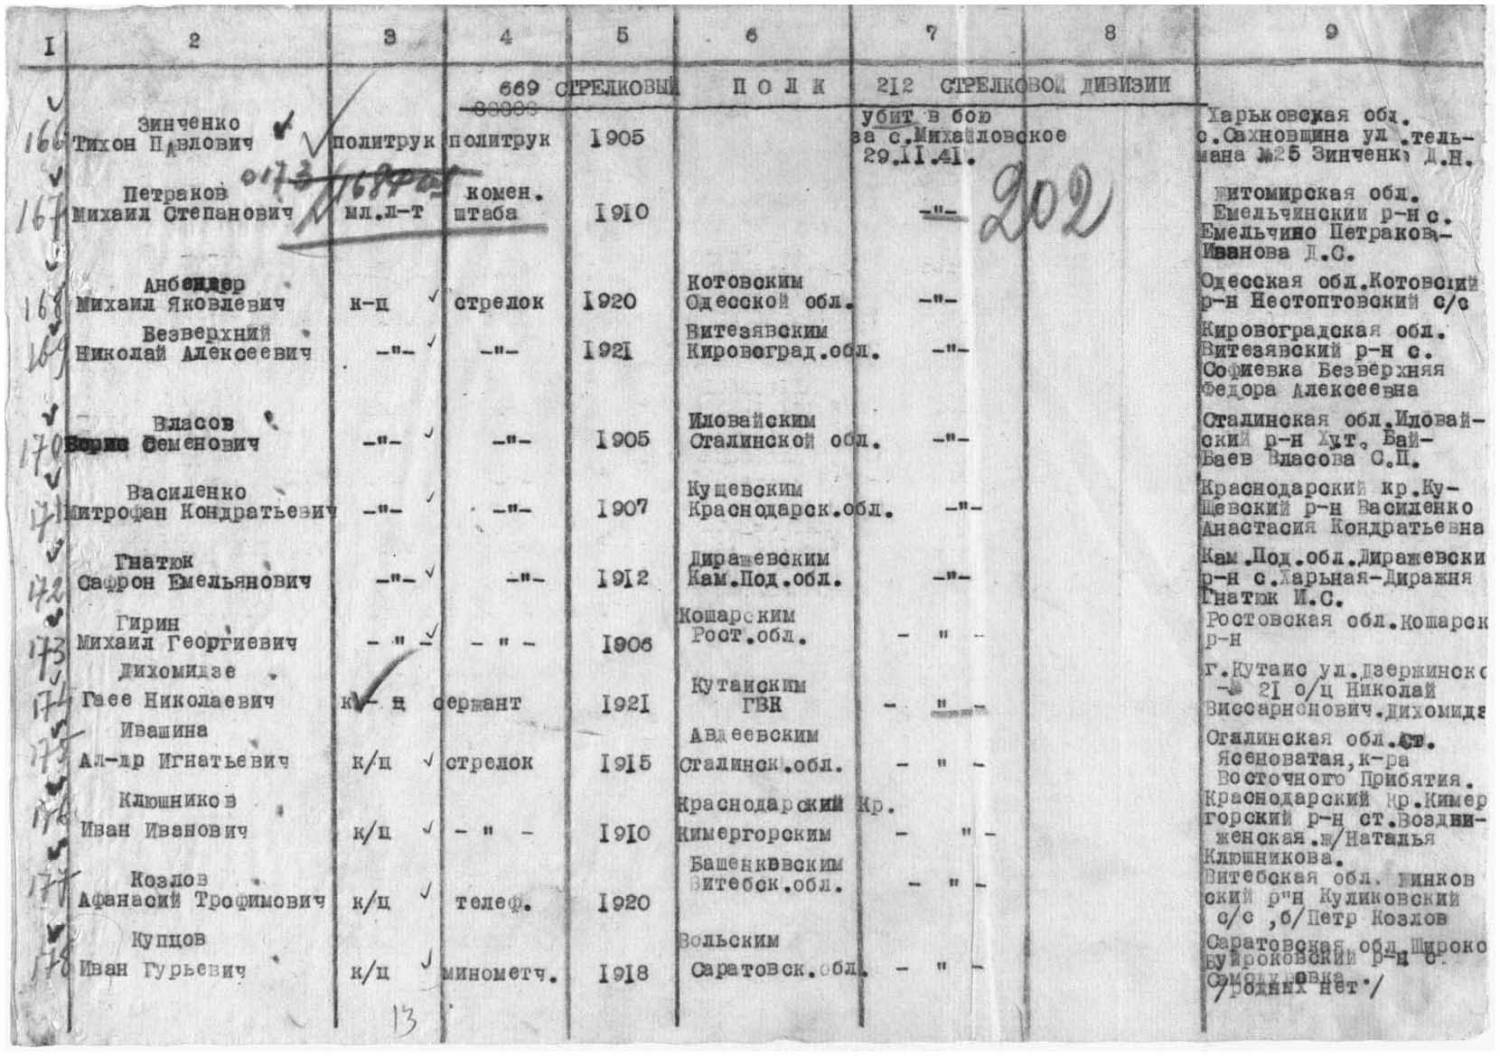 I 2 3 4 5 6 7 8 9
669 СТРЕЛКОВЫЙ ПОЛК 212 СТРЕЛКОВОЙ ДИВИЗИИ
166 Зинченко
Тихон Павлович политрук политрук I905 убит в бою
за с.Михайловское
29.II.41.
Харьковская обл.
с.Сахновщина ул.тель-
мана №25 Зинченко Д.Н.
0173
167 Петраков
Михаил Степанович мл.л-т комен.
штаба I9I0 -"- 202
Житомирская обл.
Емельчинский р-н с.
Емельчино Петракова-
Иванова Д.С.
168 Анбендер
Михаил Яковлевич к-ц стрелок I920 Котовским
Одесской обл. -"-
Одесская обл.Котовский
р-н Нестоптовский с/с
169 Безверхний
Николай Алексеевич -"- -"- I92I Витезявским
Кировоград.обл. -"-
Кировоградская обл.
Витезявский р-н с.
Софиевка Безверхняя
Федора Алексеевна
170 Власов
Борис Семенович -"- -"- I905 Иловайским
Сталинской обл. -"-
Сталинская обл.Иловай-
ский р-н Хут. Бай-
Баев Власова С.П.
171 Василенко
Митрофан Кондратьевич -"- -"- I907 Кущевским
Краснодарск.обл. -"-
Краснодарский кр.Ку-
щевский р-н Василенко
Анастасия Кондратьевна
172 Гнатюк
Сафрон Емельянович -"- -"- I9I2 Диражевским
Кам.Под.обл. -"-
Кам.Под.обл.Диражевски
р-н с.Харьная-Диражня
Гнатюк И.С.
173 Гирин
Михаил Георгиевич - " - - " - I906 Кошарским
Рост.обл. - " -
Ростовская обл.Кошарск
р-н
174 Дихомидзе
Гаее Николаевич к - ц сержант I92I Кутаиским
ГВК - " -
г.Кутаис ул.Дзержинско
-№ 2I о/ц Николай
Виссарионович.Дихомидз
175 Ивашина
Ал-др Игнатьевич к/ц стрелок I9I5 Авдеевским
Сталинск.обл. - " -
Сталинская обл.Ст.
Ясеноватая,к-ра
Восточного Прибятия.
176 Клюшников
Иван Иванович к/ц - " - I9I0 Краснодарский Кр.
Кимергорским - " -
Краснодарский кр.Кимер
горский р-н ст.Воздви-
женская.ж/Наталья
Клюшникова.
177 Козлов
Афанасий Трофимович к/ц телеф. I920 Башенковским
Витебск.обл. - " -
Витебская обл. Линков
ский р"н Куликовский
с/с ,б/Петр Козлов
178 Купцов
Иван Гурьевич к/ц минометч. I9I8 Вольским
Саратовск.обл. - " -
Саратовская обл Широко
Буйроковский р-н с.
/родных нет/
13